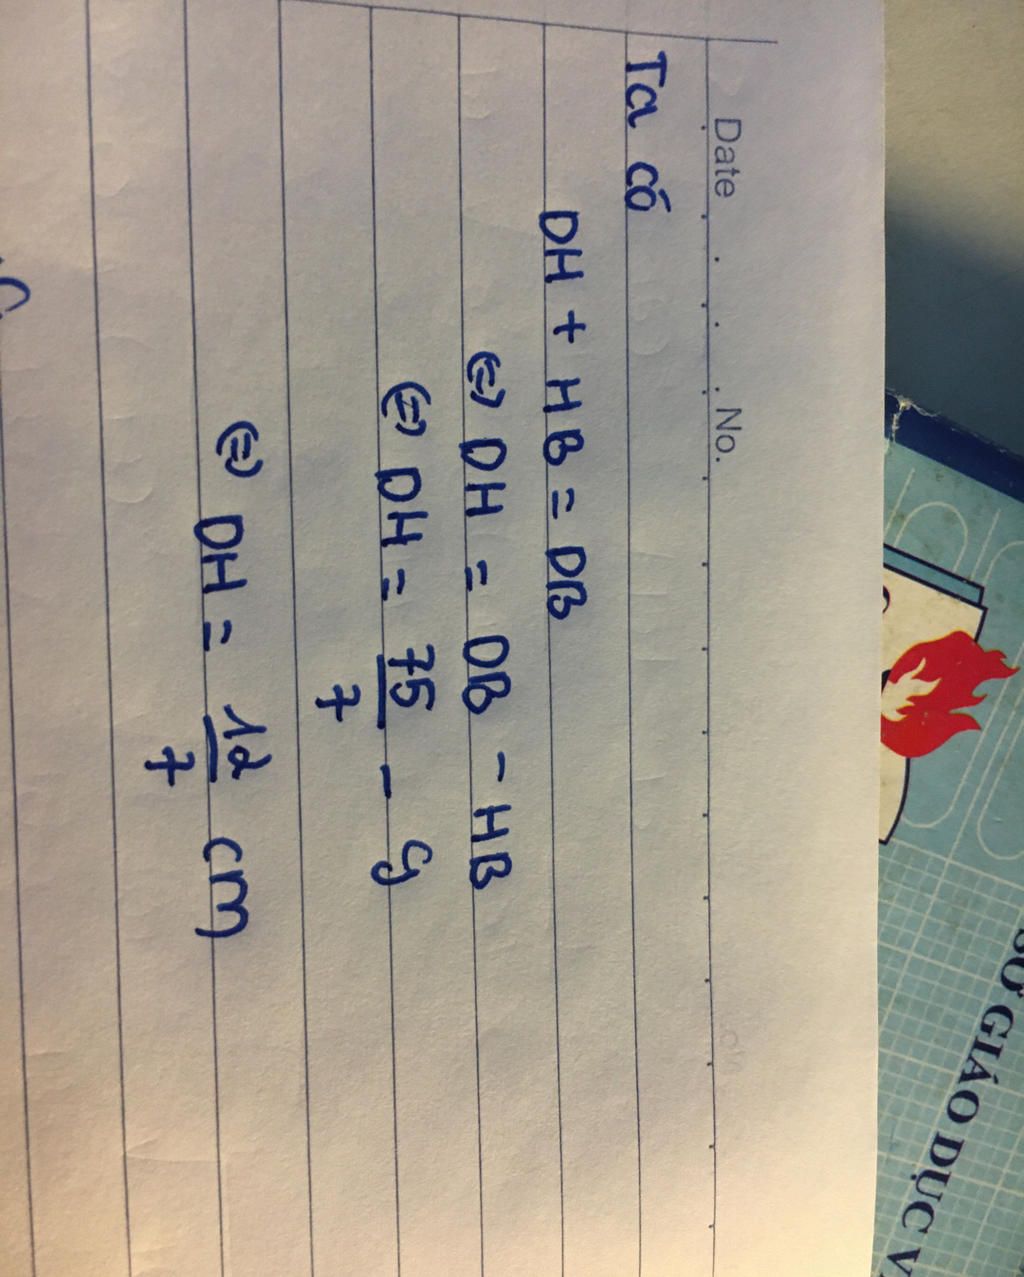 Date No.
Ta có
DH + HB = DB
(=) DH = DB - HB
(=) DH = 75/7 - 9
(=) DH = 12/7 cm
SỞ GIÁO DỤC V